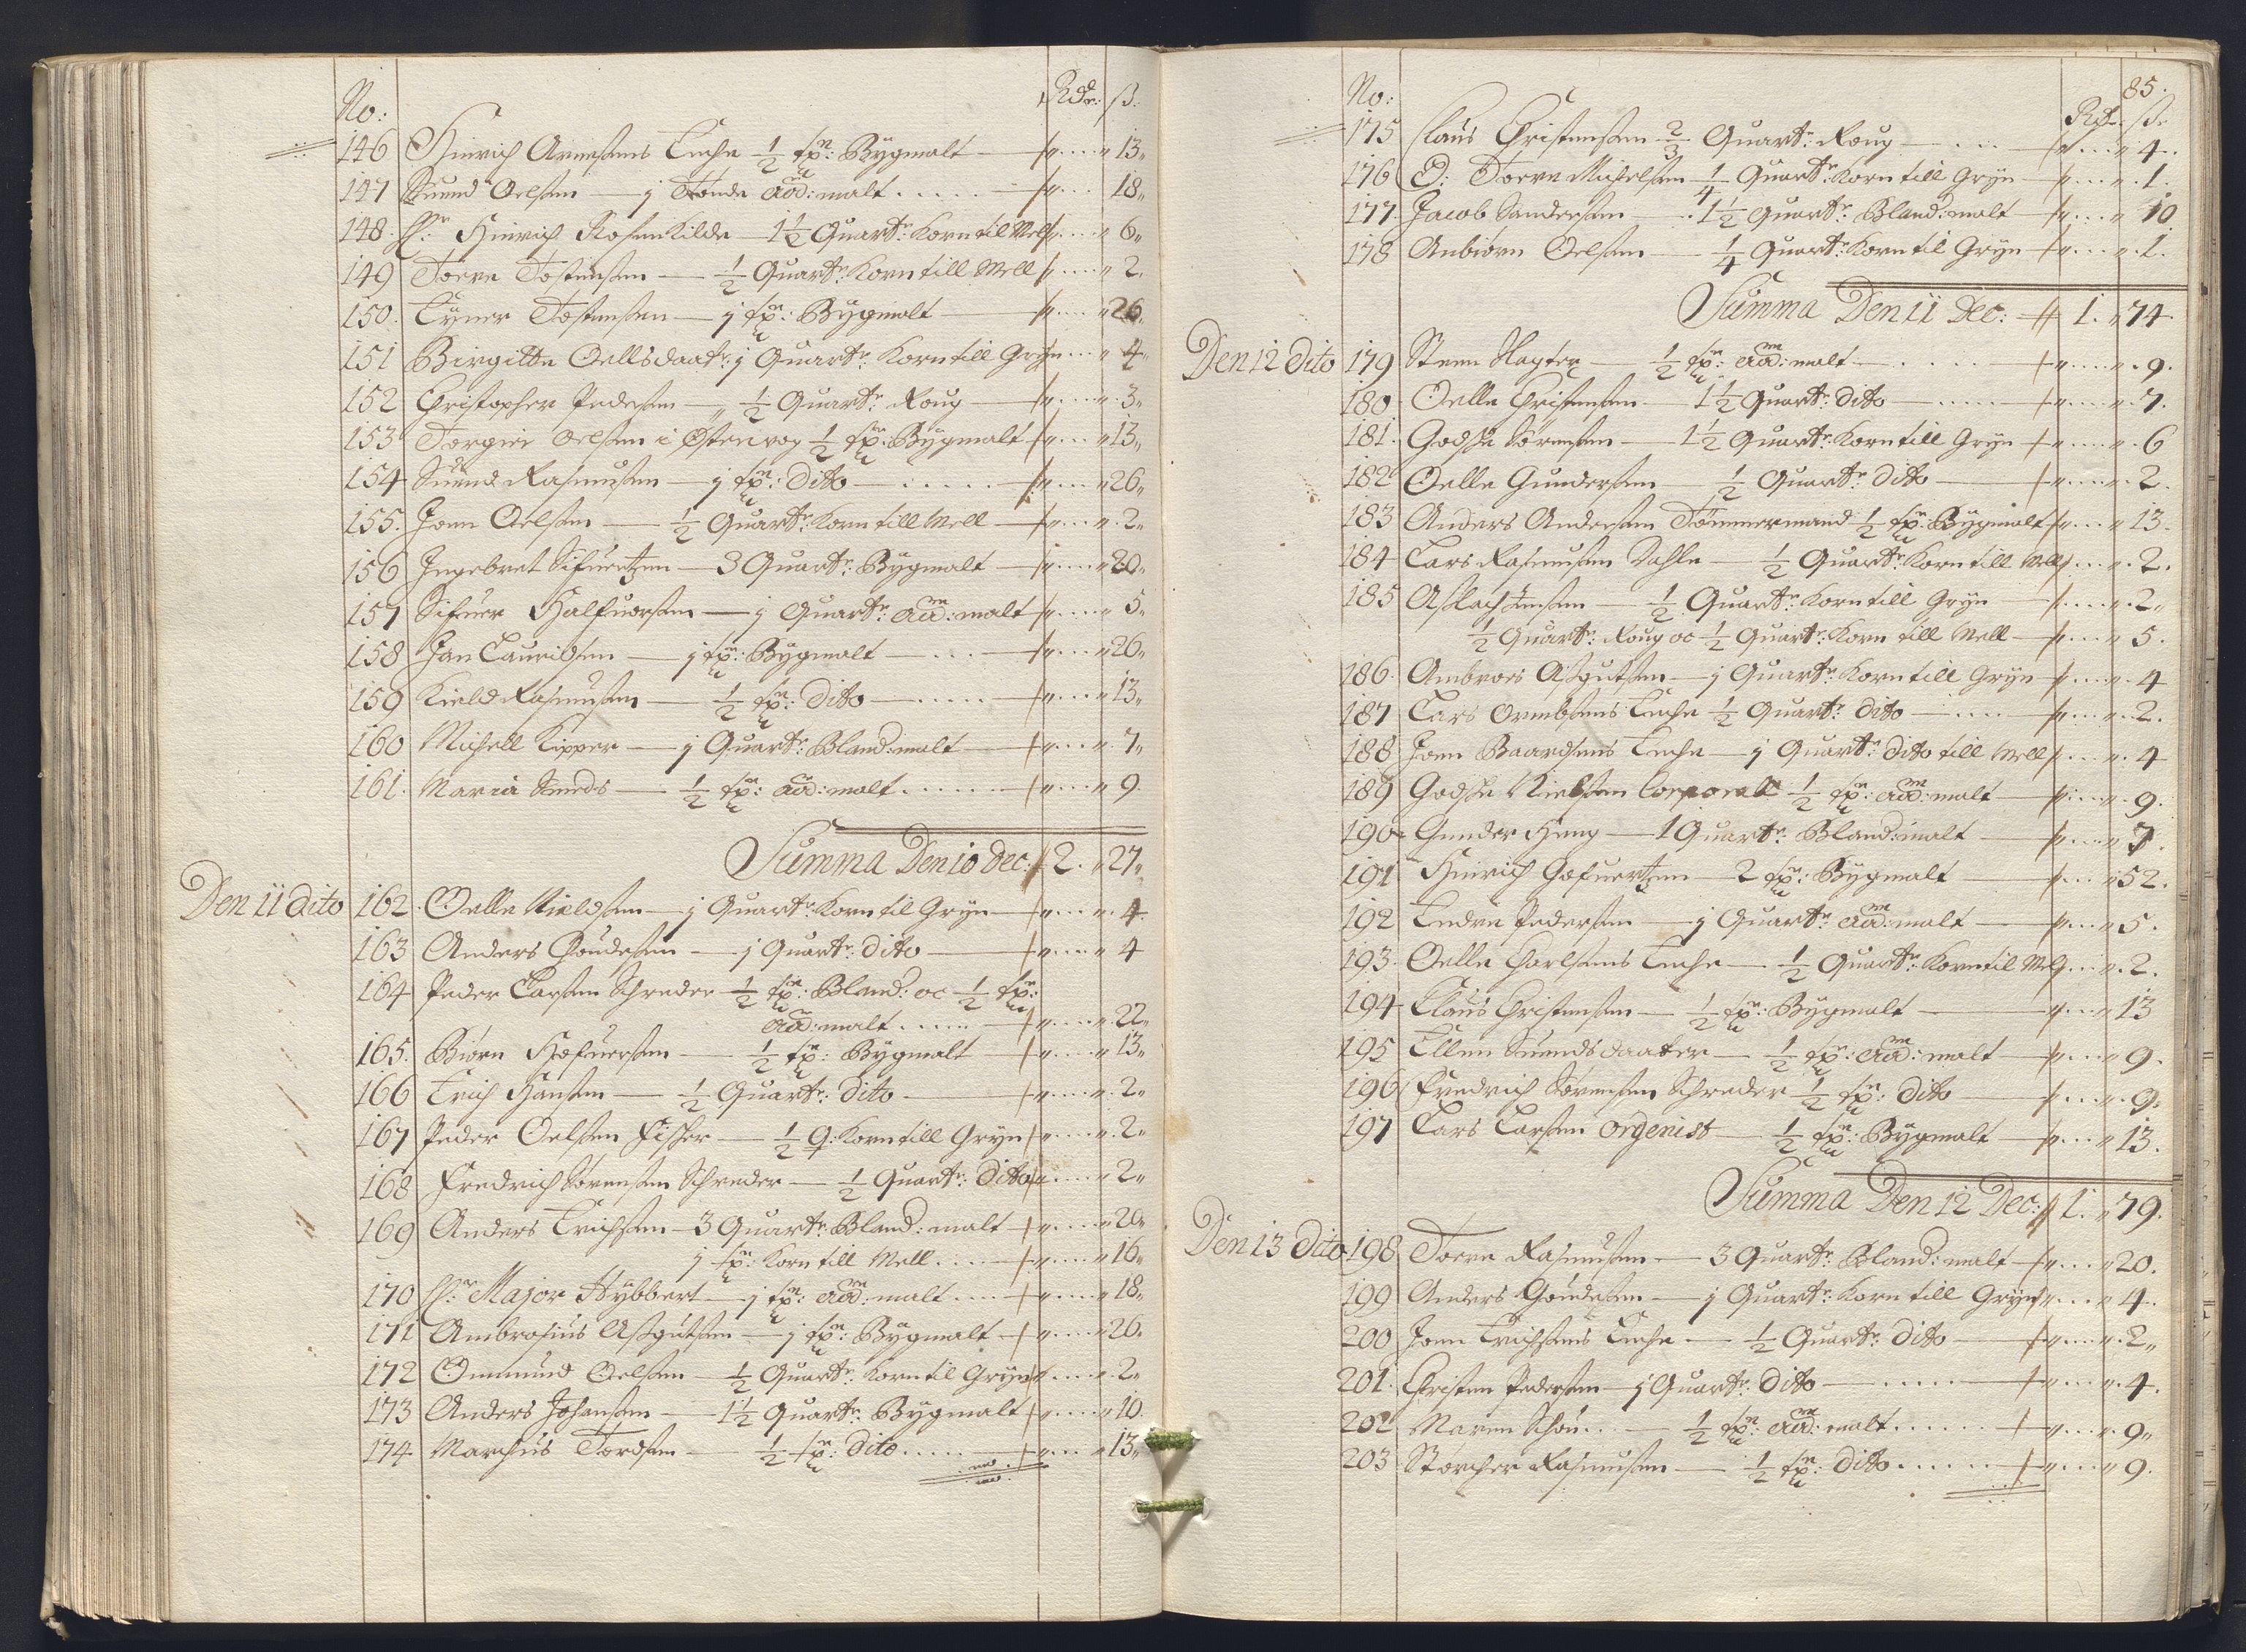 No: Rdr: ß:
146 Hinrich Arnesens Enche ½ tn: Bÿgmalt 13
147 Suend Oelsen j Tønde aad: malt 18
148 Hr: Hinrich Rosenkilde 1½ Quartr: Korn til Mell 6
149 Toere Tostensen ½ Quartr: Korn till Mell 2
150 Eÿner Tostensen j tn: Bÿgmalt 26
151 Birgitte Oellsdaatr: j Quartr: Korn till Grÿn 4
152 Christopher Pedersen ½ Quartr: Roug 3
153 Torgier Oelsen i Østervog ½ tn: Bÿgmalt 13
154 Suend Rasmusen j tn: dito 26
155 Jonn Oelsen ½ Quartr: Korn till Mell 2
156 Ingebret Sifuertzen 3 Quartr: Bÿgmalt 20
157 Sifuer Halfuorsen j Quartr: aad: malt 5
158 Jan Lauridsen j tn: Bÿgmalt 26
159 Kield Rasmusen ½ tn: dito 13
160 Michell Kipper j Quartr: Bland: malt 7
161 Maria Smeds ½ tn: aad: malt 9
Summa Den 10 Dec: 2. 27
Den 11 dito 162 Oelle Nielsen j Quartr: Korn til Grÿn 4
163 Anders Goudesen j Quartr: dito 4
164 Peder Larsen Schreder ½ tn: Bland: oc ½ tn:
aad: malt 22
165 Biørn Hofuersen ½ tn: Bÿgmalt 13
166 Erich Hansen ½ Quartr: dito 2
167 Peder Oelsen Fisker ½ Q: Korn till Grÿn 2
168 Fredrich Sørensen Schreder ½ Quartr: dito 2
169 Anders Erichsen 3 Quartr: Bland: malt 20
j tn: Korn till Mell 16
170 Hr: Major Hÿbbert j tn: aad: malt 18
171 Ambrosius Asgutsen j tn: Bÿgmalt 26
172 Ommund Oelsen ½ Quartr: Korn til Grÿn 2
173 Anders Johansen 1½ Quartr: Bÿgmalt 10
174 Marchus Tordsen ½ tn: dito 13
85.
No: Rdr: ß:
175 Claus Christensen 2/3 Quartr: Roug 4
176 E: Toere Michelsen ¼ Quartr: Korn till Grÿn 1
177 Jacob Sandersen 1½ Quartr: Bland: malt 10
178 Anbiørn Oelsen ¼ Quartr: Korn til Grÿn 1
Summa Den 11 Dec: 1. 74
Den 12 dito 179 Steen Slagter ½ tn: aad: malt 9
180 Oelle Christensen 1½ Quartr: dito 7
181 Godske Sørensen 1½ Quartr: Korn till Grÿn 6
182 Oelle Gundersen ½ Quartr: dito 2
183 Anders Andersen Tømmermand ½ tn: Bÿgmalt 13
184 Lars Rasmusen Dahle ½ Quartr: Korn till Mell 2
185 Aslach Jensen ½ Quartr: Korn till Grÿn 2
½ Quartr: Roug oc ½ Quartr: Korn till Mell 5
186 Ambroes Asgutsen j Quartr: Korn till Grÿn 4
187 Lars Ormbsens Enche ½ Quartr: dito 2
188 Jonn Baardsens Enche j Quartr: dito till Mell 4
189 Godske Nielsen Corporal ½ tn: aad: malt 9
190 Gunder Haug 1 Quartr: Bland: malt 7
191 Hinrich Gofuertzen 2 tn: Bÿgmalt 52
192 Endre Pedersen j Quartr: aad: malt 5
193 Oelle Carlsens Enche ½ Quartr: Korn til Mel 2
194 Claus Christensen ½ tn: Bÿgmalt 13
195 Ellen Suendsdaater ½ tn: aad: malt 9
196 Fredrich Sørensen Schreder ½ tn: dito 9
197 Lars Larsen Orgenist ½ tn: Bÿgmalt 13
Summa Den 12 Dec: 1. 79
Den 13 dito 198 Toere Rasmusen 3 Quartr: Bland: malt 20
199 Anders Goudesen j Quartr: Korn till Grÿn 4
200 Jonn Erichsens Enche ½ Quartr: dito 2
201 Christen Pedersen j Quartr: dito 4
202 Maren Schou ½ tn: aad: malt 9
203 Størcher Rasmusen ½ tn: dito 9